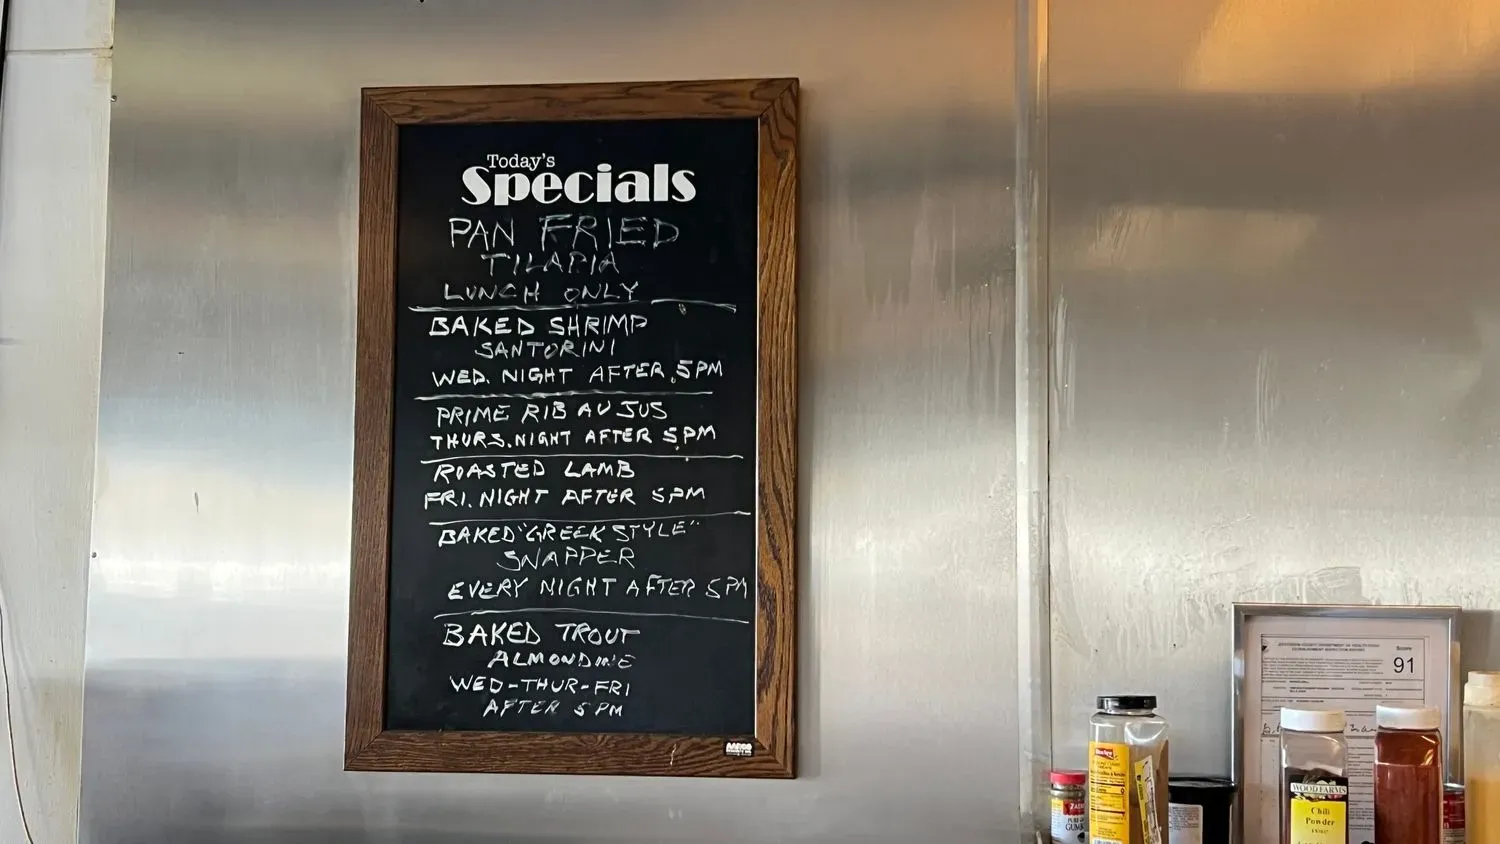 Today's
Specials
PAN FRIED
TILAPIA
LUNCH ONLY
BAKED SHRIMP
SANTORINI
WED. NIGHT AFTER 5PM
PRIME RIB AU JUS
THURS. NIGHT AFTER 5PM
ROASTED LAMB
FRI. NIGHT AFTER 5PM
BAKED "GREEK STYLE"
SNAPPER
EVERY NIGHT AFTER 5PM
BAKED TROUT
ALMONDINE
WED-THUR-FRI
AFTER 5 PM
Score
91
WOOD FARMS
Chili
Powder